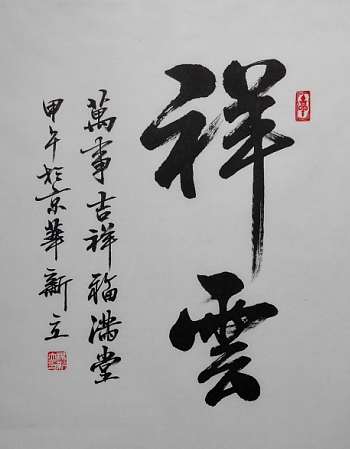 祥雲
萬事吉祥福满堂
甲午於京華新立